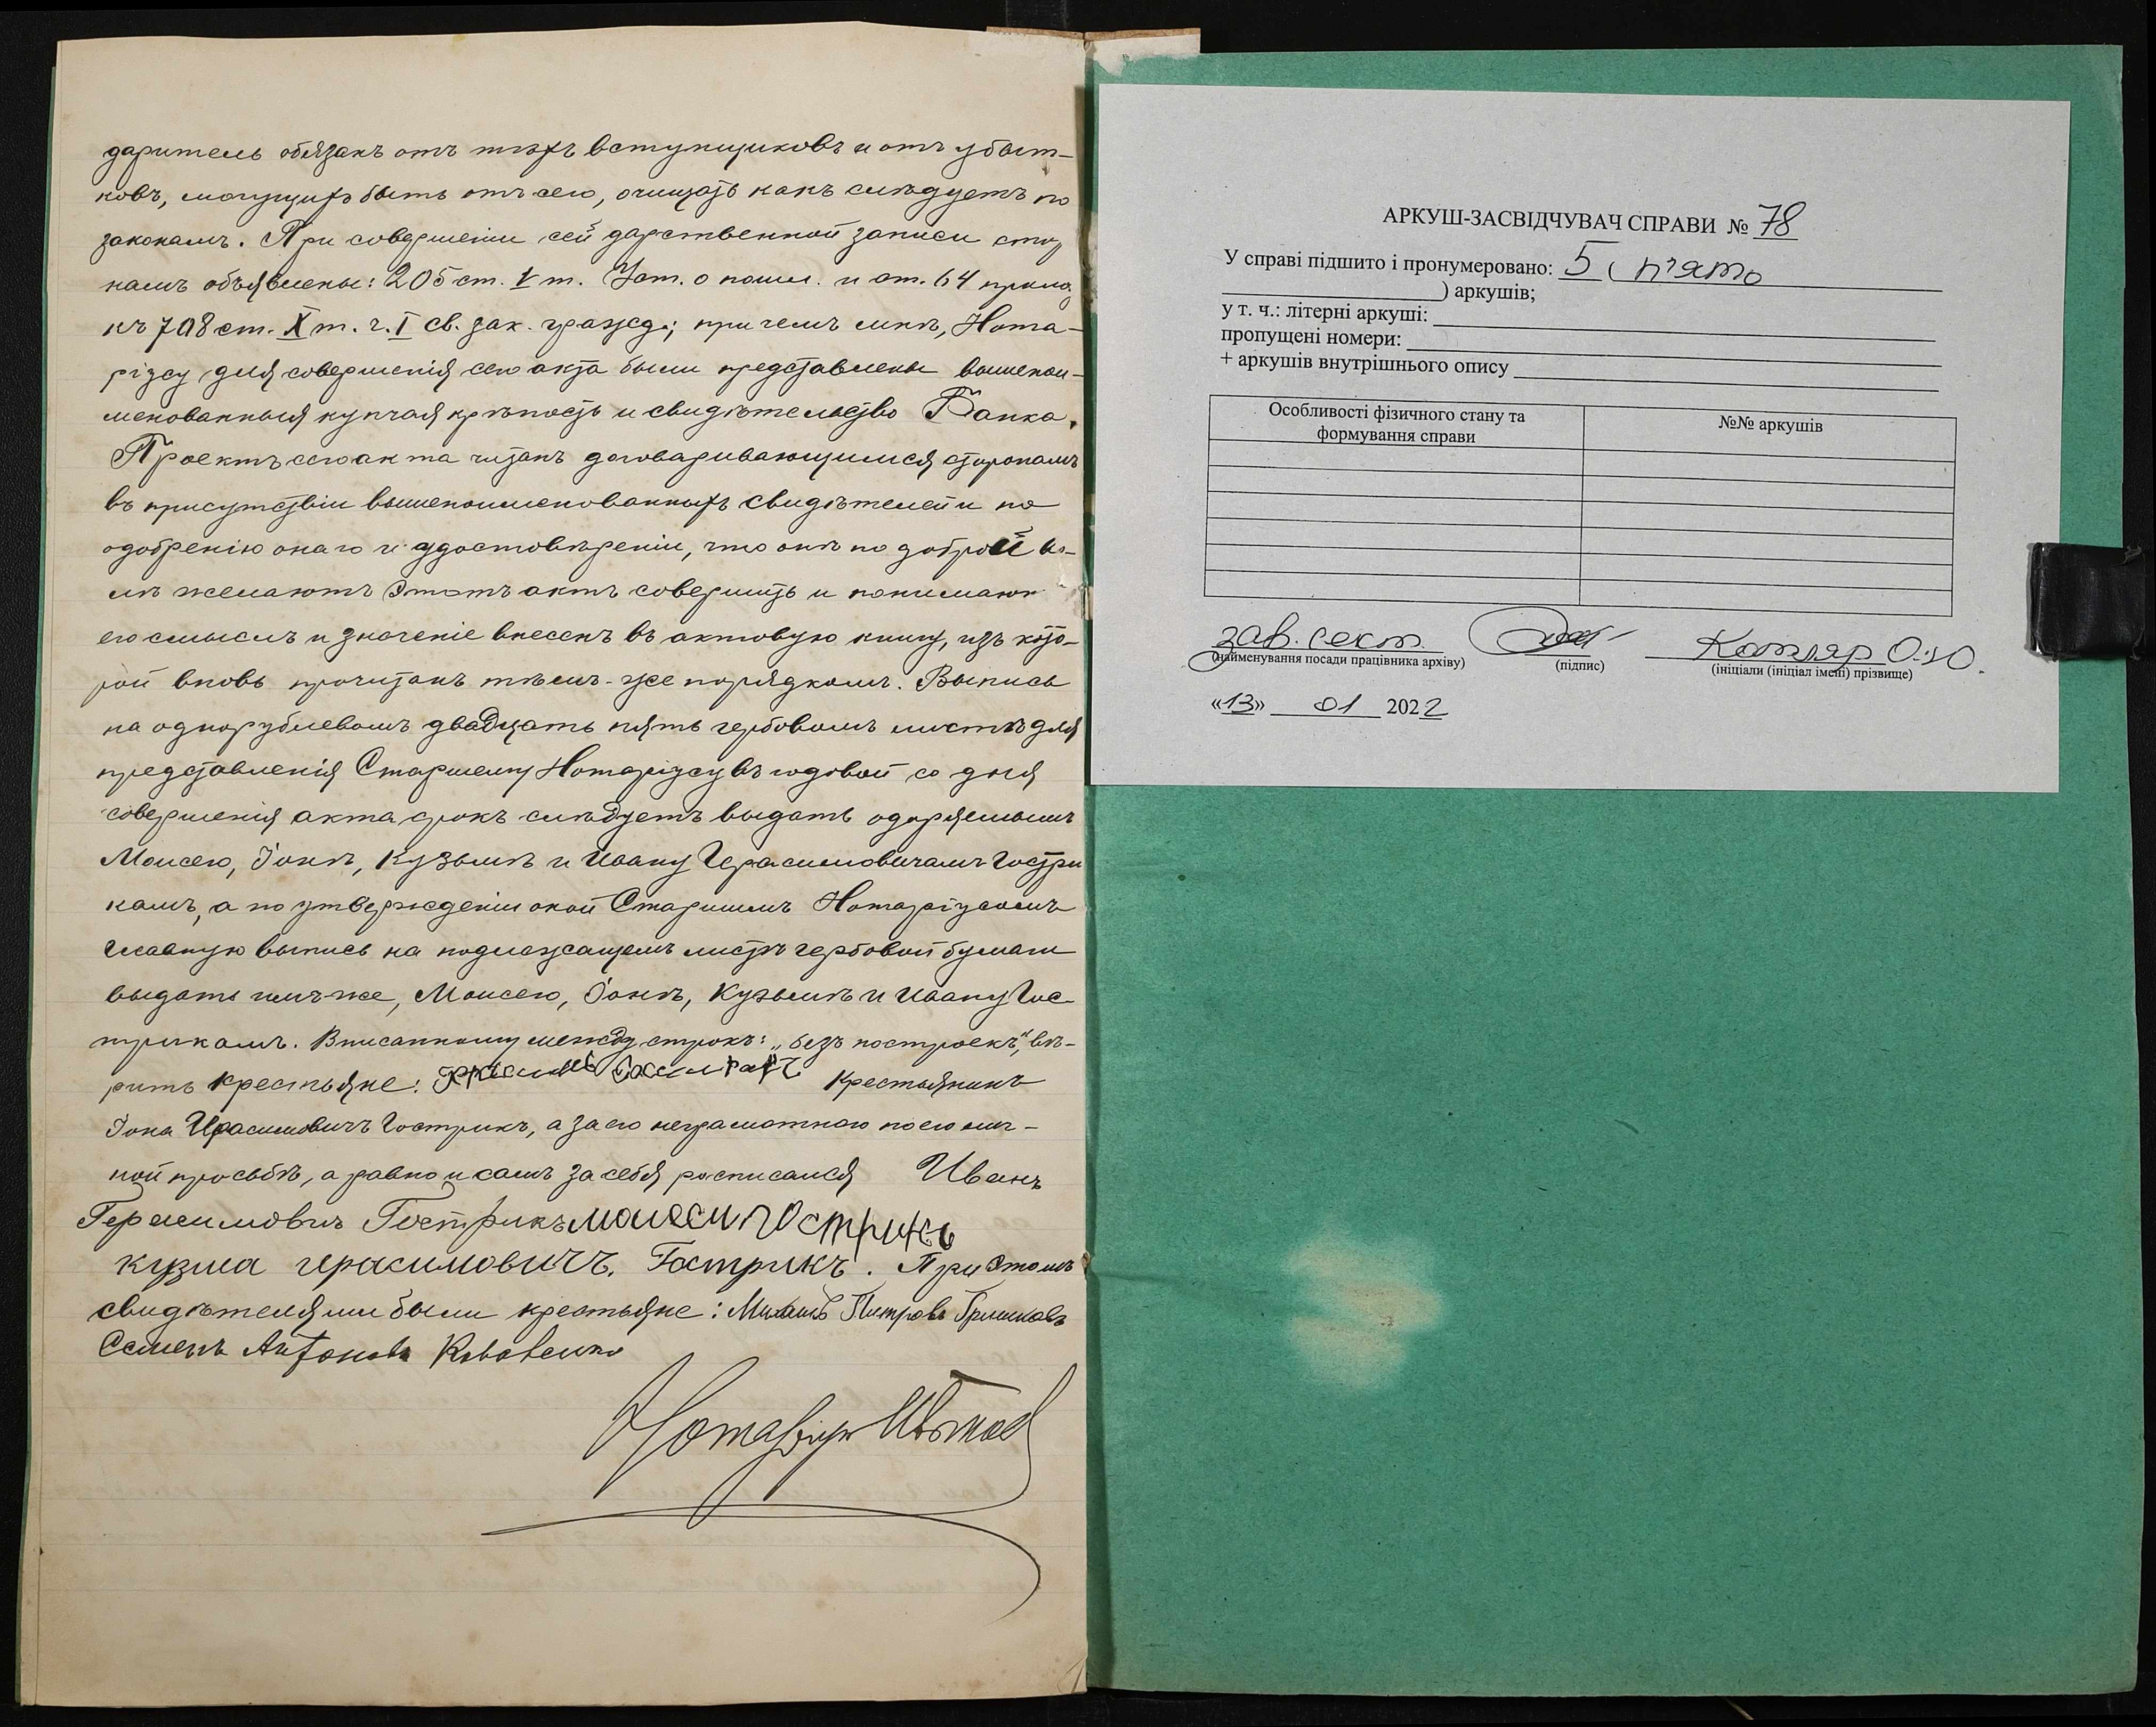 даритель обязанъ отъ тѣхъ вступщиковъ и отъ убыт-
ковъ, могущихъ быть отъ сего, очищать какъ слѣдуетъ по
законамъ. При совершеніи сей дарственной записи сто
намъ объявлены: 205 ст. V т. Уст. о пошл. и ст. 64 прило
къ 708 ст. X т. ч. I св. зак. гражд.; при чемъ мнѣ, Нота-
ріусу для совершенія сего акта были представлены вышепои-
менованныя купчая крѣпость и свидѣтельство Банка.
Проектъ сего акта читанъ договаривающимся сторонамъ
въ присутствіи вышепоименованныхъ свидѣтелей и по
одобренію онаго и удостовѣреніи, что онѣ по доброй во-
лѣ желаютъ этотъ актъ совершить и понимаютъ
его смыслъ и значеніе внесенъ въ актовую книгу, изъ кото-
рой вновь прочитанъ тѣмъ-же порядкомъ. Выпись
на однорублевомъ двадцать пять гербовомъ листѣ для
представленія Старшему Нотаріусу въ годовой со дня
совершенія акта срокъ слѣдуетъ выдать одаряемымъ
Моисею, Іонѣ, Кузьмѣ и Ивану Герасимовичамъ Гостри
камъ, а по утвержденіи оной Старшимъ Нотаріусомъ
главную выпись на подлежащемъ листѣ гербовой бумаги
выдать имъ-же, Моисею, Іонѣ, Кузьмѣ и Ивану Гос-
трикамъ. Вписанному между строкъ: „безъ построекъ", вѣ-
рить крестьяне: Крестьянинъ
Іона Герасимовичъ Гострикъ, а за его неграмотного по его лич-
ной просьбѣ, а равно и самъ за себя росписался Иванъ
Герасимовичъ Гострикъ моисей Гострикъ
кузма герасимовичъ. Гострикъ. При этомъ
свидѣтелями были крестьяне: Михаилъ Питровъ
Семенъ Антоновъ Коваленко
Нотаріусъ
АРКУШ-ЗАСВІДЧУВАЧ СПРАВИ № 78
У справі підшито і пронумеровано: 5 ( п'ять
) аркушів;
у т. ч.: літерні аркуші:
пропущені номери:
+ аркушів внутрішнього опису
Особливості фізичного стану та формування справи
№№ аркушів
зав. сект. Котляр О.Ю.
(найменування посади працівника архіву) (підпис) (ініціали (ініціал імені) прізвище)
«13» 01 2022